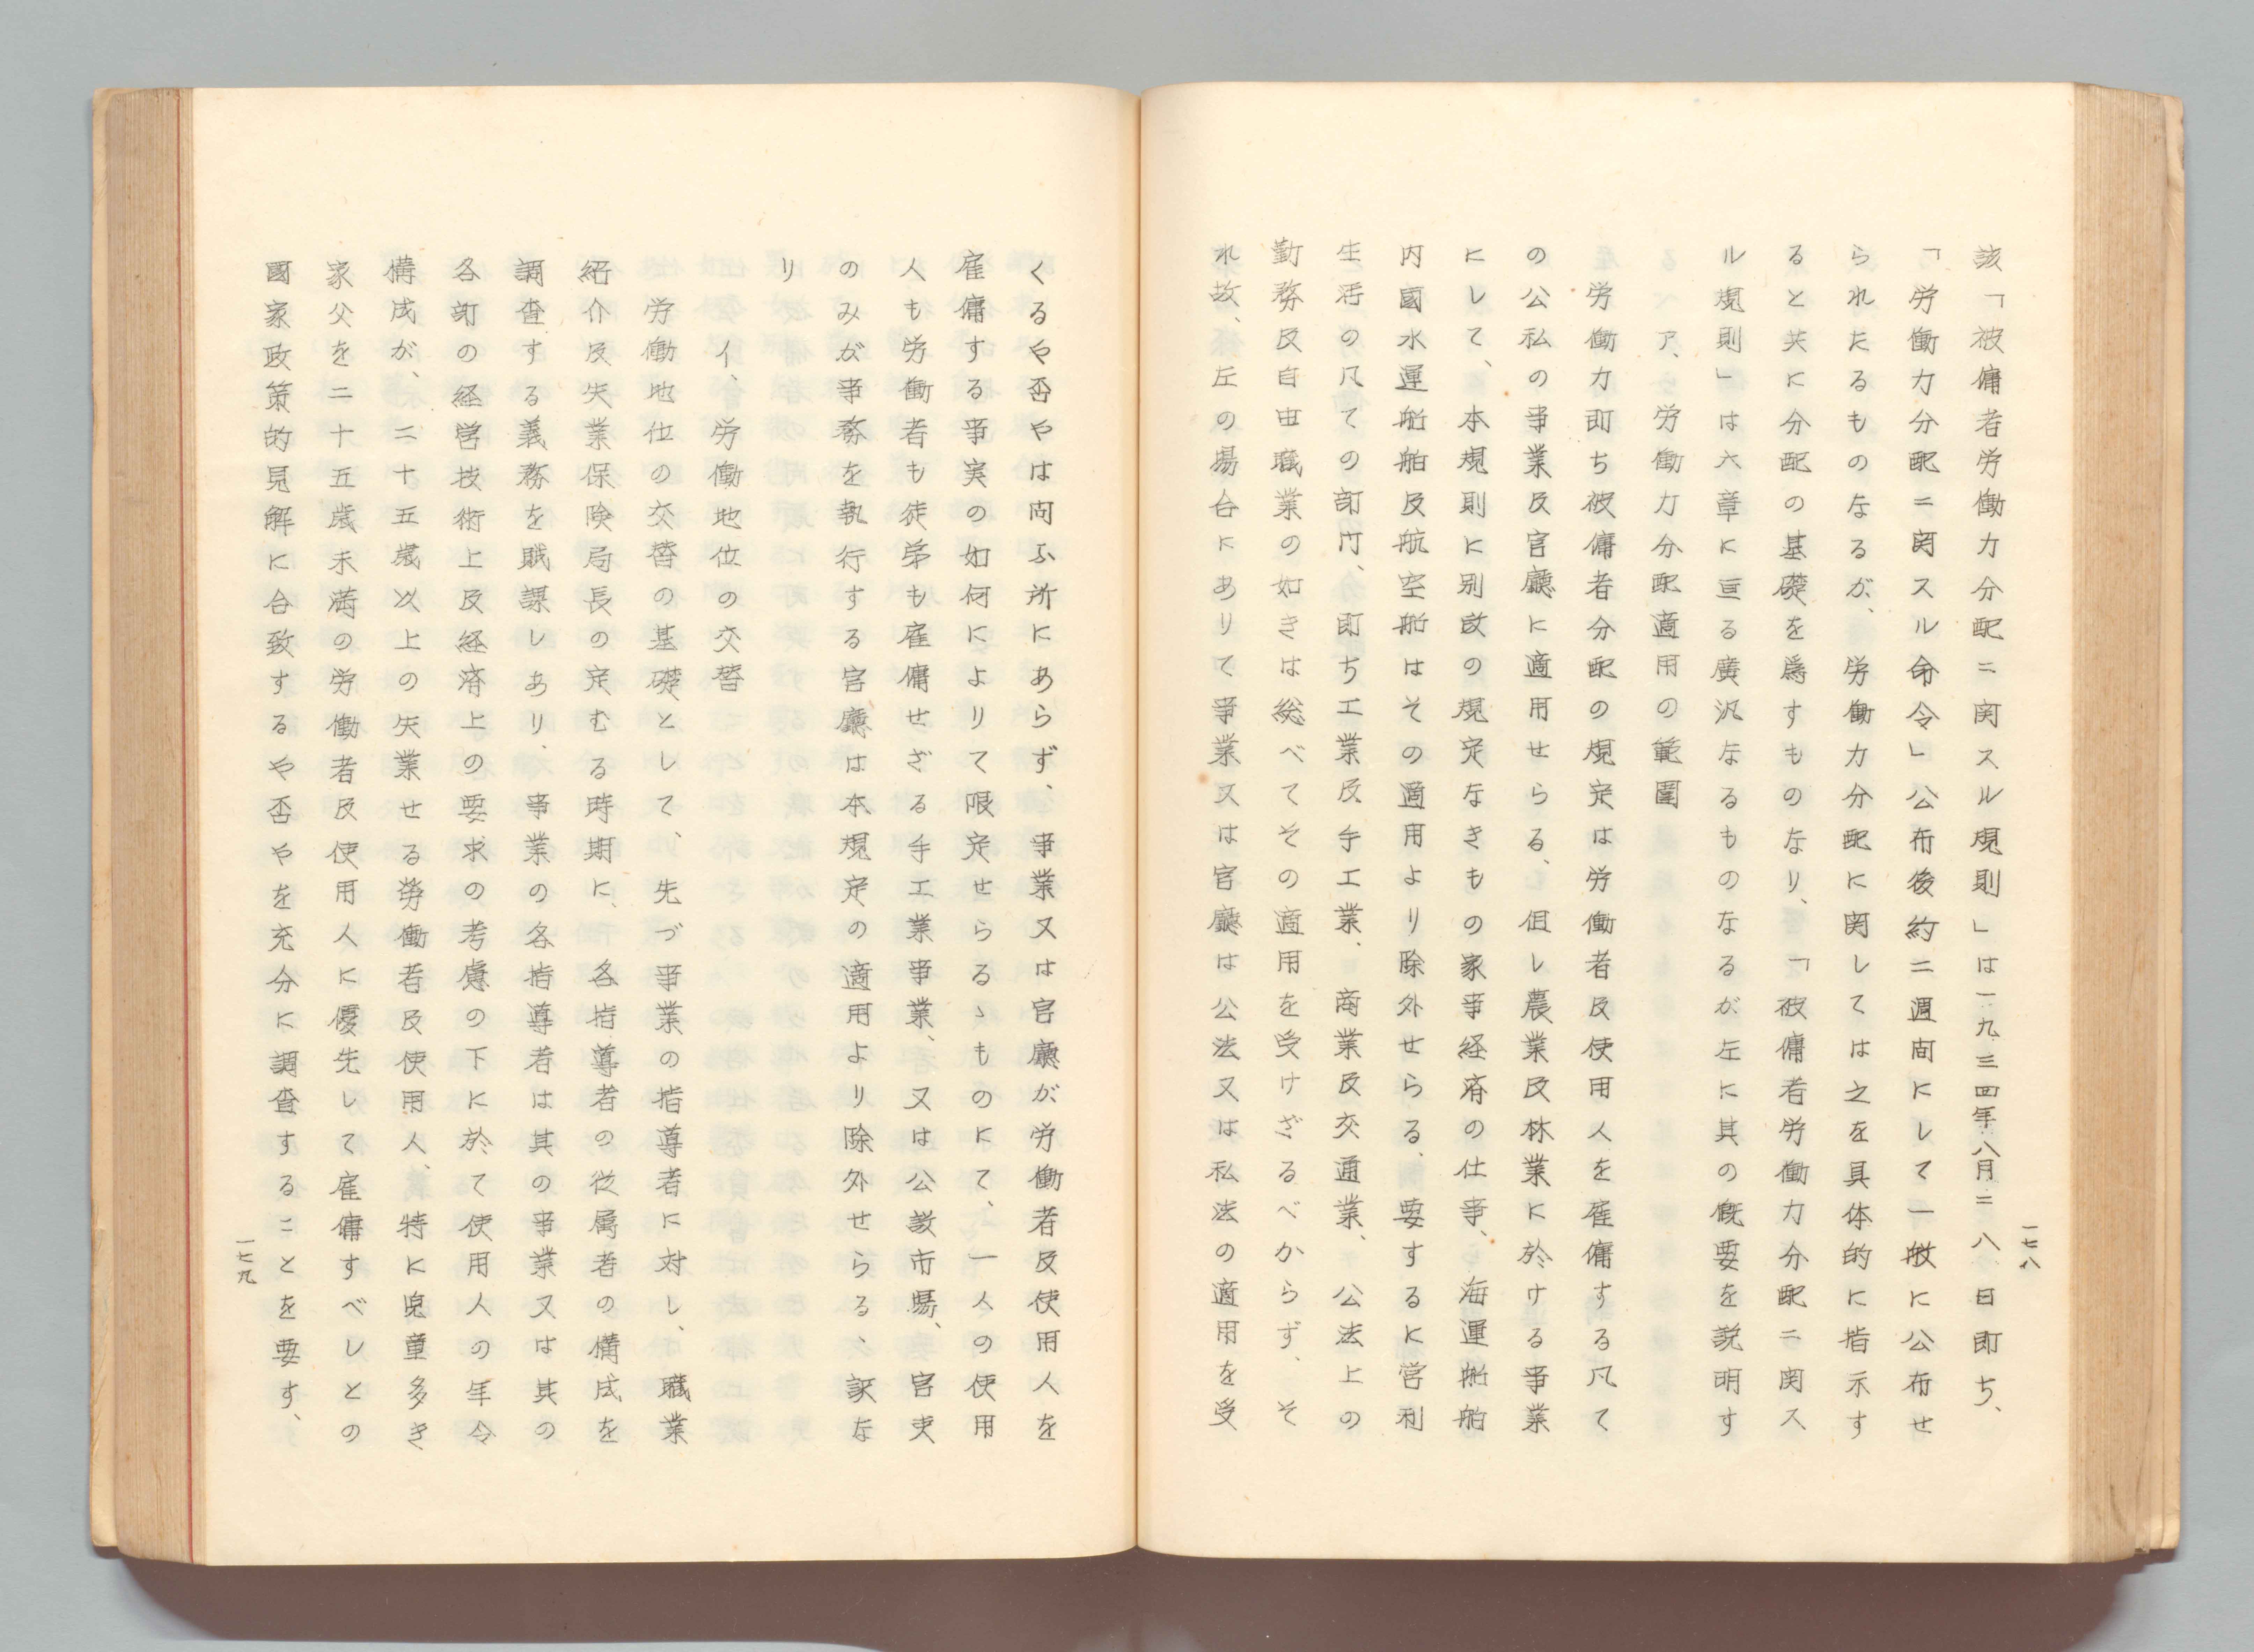 一七八
該「被傭者労働力分配ニ関スル規則」は一九三四年八月二八日即ち、
「労働力分配ニ関スル命令」公布後約二週間にして一般に公布せ
られたるものなるが、労働力分配に関しては之を具体的に指示す
ると共に分配の基礎を為すものなり、「被傭者労働力分配ニ関ス
ル規則」は六章に亘る廣汎なるものなるが左に其の概要を説明す
ア、労働力分配適用の範囲
労働力即ち被傭者分配の規定は労働者及使用人を雇傭する凡て
の公私の事業及官廳に適用せらる、但し農業及林業に於ける事業
にして、本規則に別段の規定なきもの家事経済の仕事、海運船舶
内國水運船舶及航空船はその適用より除外せらる、要するに営利
生活の凡ての部門、即ち工業及手工業、商業及交通業、公法上の
勤務及自由職業の如きは総べてその適用を受けざるべからず、そ
れ故、左の場合にありて事業又は官廳は公法又は私法の適用を受
くるや否やは問ふ所にあらず、事業又は官廳が労働者及使用人を
雇傭する事実の如何によりて限定せらるゝものにて、一人の使用
人も労働者も徒弟も雇傭せざる手工業事業、又は公設市場、官吏
のみが事務を執行する官廳は本規定の適用より除外せらる、訳な
り
イ、労働地位の交替
労働地位の交替の基礎として、先づ事業の指導者に対し、職業
紹介及失業保険局長の定むる時期に、各指導者の従属者の構成を
調査する義務を賦課しあり、事業の各指導者は其の事業又は其の
各部の経営技術上及経済上の要求の考慮の下に於て使用人の年令
構成が、二十五歳以上の失業せる労働者及使用人、特に児童多き
家父を二十五歳未満の労働者及使用人に優先して雇傭すべしとの
國家政策的見解に合致するや否やを充分に調査することを要す、
一七九